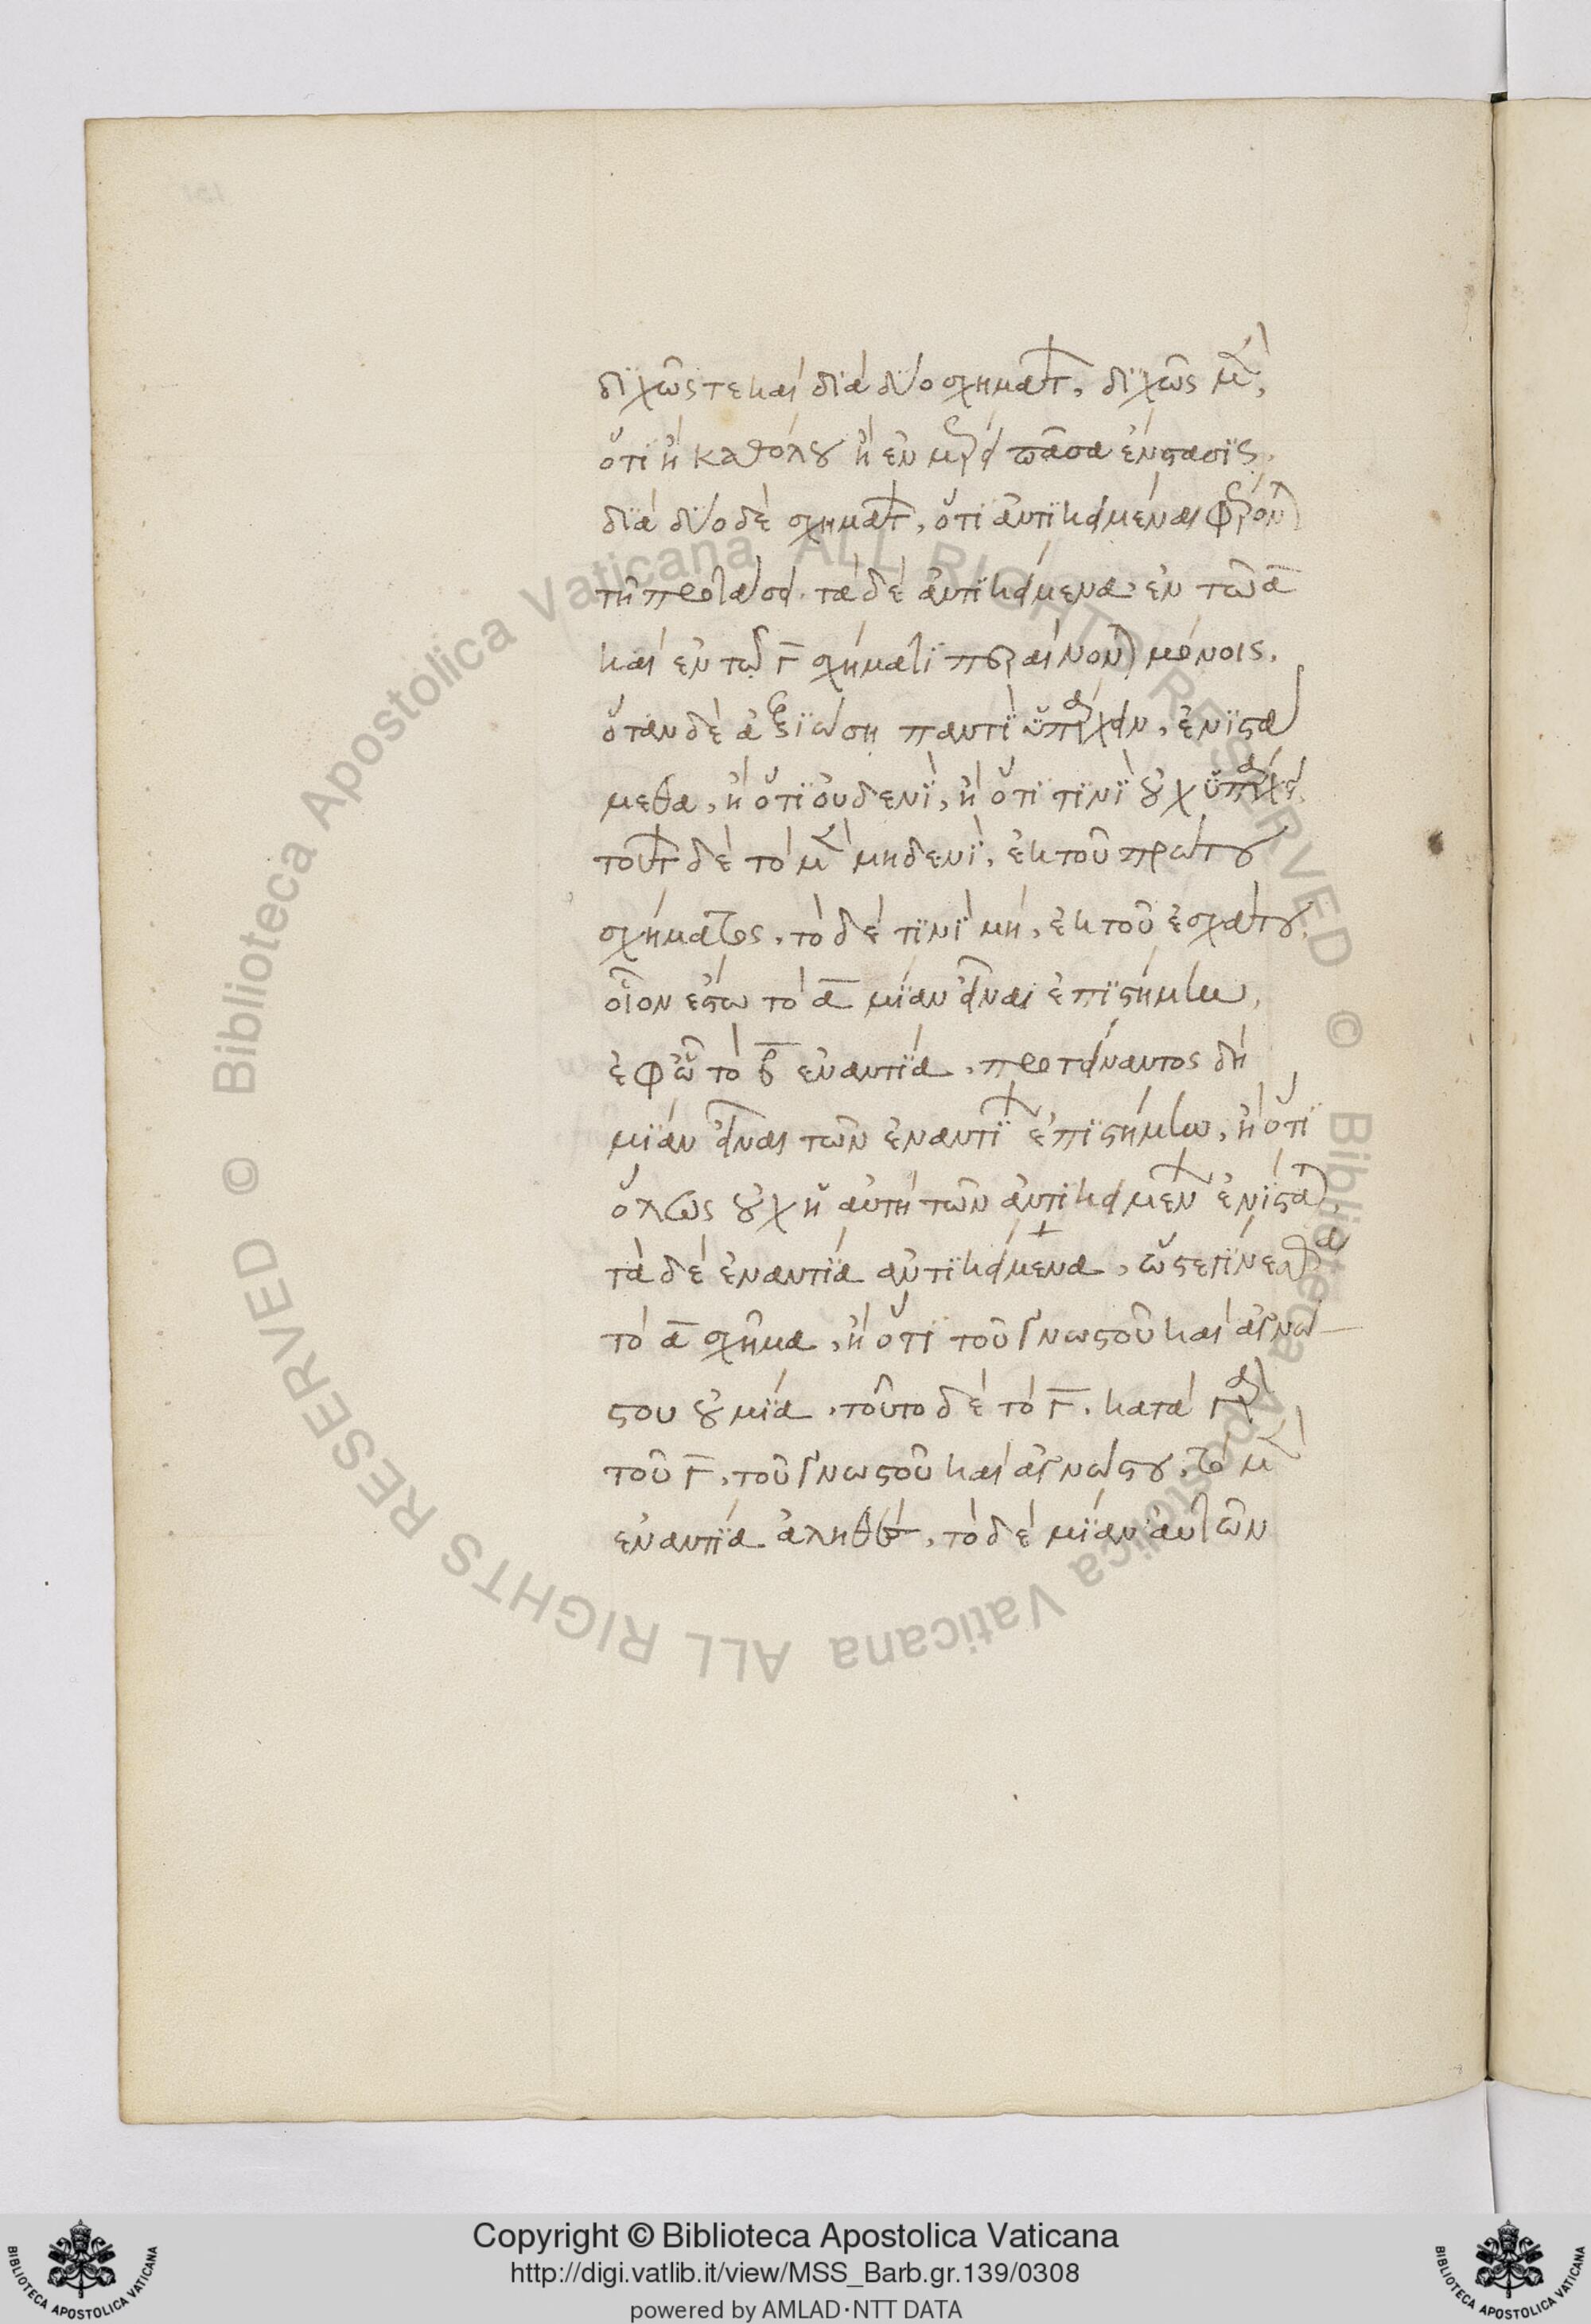 διχῶς τε καὶ διὰ δύο σχημάτων, διχῶς μὲν,
ὅτι ἢ καθόλου ἢ ἐν μέρει πᾶσα ἔνστασις.
διὰ δύο δὲ σχημάτων, ὅτι ἀντικείμεναι φέρονται
τῇ προτάσει. τὰ δὲ ἀντικείμενα, ἐν τῶ α
καὶ ἐν τῶ γ σχήματι περαίνονται μόνοις.
ὅταν δὲ ἀξιώση παντὶ ὑπάρχειν, ἐνιστά
μεθα, ἢ ὅτι οὐδενὶ, ἢ ὅτι τινὶ οὐχ ὑπάρχει.
τούτων δὲ τὸ μὲν μηδενὶ, ἐκ τοῦ πρώτου
σχήματος, τὸ δὲ τινὶ μὴ, ἐκ τοῦ ἐσχάτου.
οἷον ἔστω τὸ α μίαν εἶναι ἐπιστήμην,
ἐφ᾽ ὧ τὸ β ἐναντία. προτείναντος δὴ
μίαν εἶναι τῶν ἐναντίων ἐπιστήμην, ἢ ὅτι
ὅλως οὐχ ἡ αὐτὴ τῶν ἀντικειμένων ἐνίσταται
τὰ δὲ ἐναντία ἀντικείμενα, ὥστε γίνεσθαι
τὸ α σχῆμα, ἢ ὅτι τοῦ γνωστοῦ καὶ ἀγνώ
στου οὐ μία. τοῦτο δὲ τὸ γ. κατὰ γὰρ
τοῦ γ, τοῦ γνωστοῦ καὶ ἀγνώστου, τὸ μὲν
ἐναντία ἀληθὲς, τὸ δὲ μίαν αὐτῶν
Copyright © Biblioteca Apostolica Vaticana
http://digi.vatlib.it/view/MSS_Barb.gr.139/0308
powered by AMLAD·NTT DATA